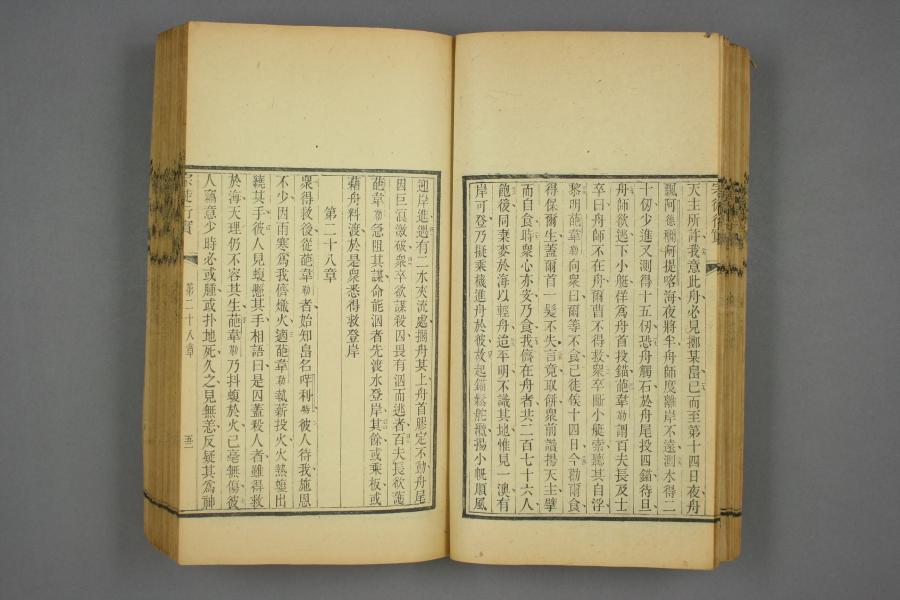 天主所許我意此舟必見擲某島已而至第十四日夜舟
飄阿德嘞阿提喀海夜將半舟師度離岸不遠測水得二
十仞少進又測得十五仞恐舟觸石於舟尾投四錨待旦
舟師欲逃下小艇佯爲舟首投錨葩韋勒謂百夫長及士
卒曰舟師不在舟爾曹不得救衆卒斷小艇索聽其自浮
黎明葩韋勒向衆曰爾等不食已徒俟十四日今勸爾食
得保爾生蓋爾首一髮不失言竟取餅衆前讚揚天主擘
而自食時衆心亦安乃食我儕在舟者共二百七十六人
飽後同棄麥於海以輕舟迨平明不識其地惟見一澳有
岸可登乃擬乘機進舟於彼故起錨鬆舵纜揚小帆順風
迎岸進遇有二水夾流處擱舟其上舟首膠定不動舟尾
因巨浪激破衆卒欲謀殺囚畏有泅而逃者百夫長欲護
葩韋勒急阻其謀命能泅者先渡水登岸其餘或乘板或
藉舟料渡於是衆悉得救登岸
第二十八章
衆得救後從葩韋勒者始知島名哶利特彼人待我施恩
不少因雨寒爲我儕爇火適葩韋勒執薪投火火熱蝮出
繞其手彼人見蝮懸其手相語曰是囚蓋殺人者雖得救
於海天理仍不容其生葩韋勒乃抖蝮於火己毫無傷彼
人竊意少時必或腫或扑地死久之見無恙反疑其爲神
宗徒行實
第二十八章